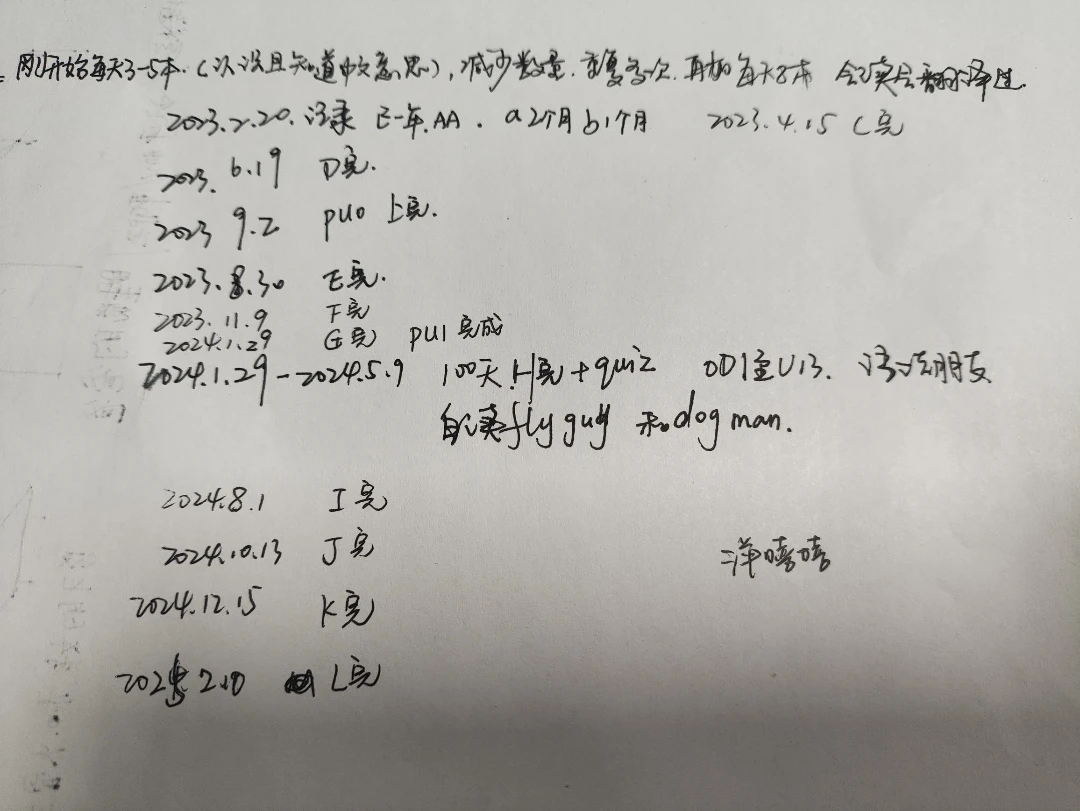 刚开始每天3-5本.(认识且知道中文意思),减少数量.重复多次.再加每天8本 会读会翻译过.
2023.2.20.记录 已一年.AA. a2个月 b1个月 2023.4.15 C完
2023. 6.19 D完.
2023 9.2 pu0 上完.
2023.8.30 E完.
2023.11.9 F完
2024.1.29 G完 pu1完成
2024.1.29-2024.5.9 100天.H完+quiz OD1至U13. 语法朋友
自读fly guy 和dog man.
2024.8.1 I完
2024.10.13 J完
洋嘻嘻
2024.12.15 K完
2025 2.10 L完